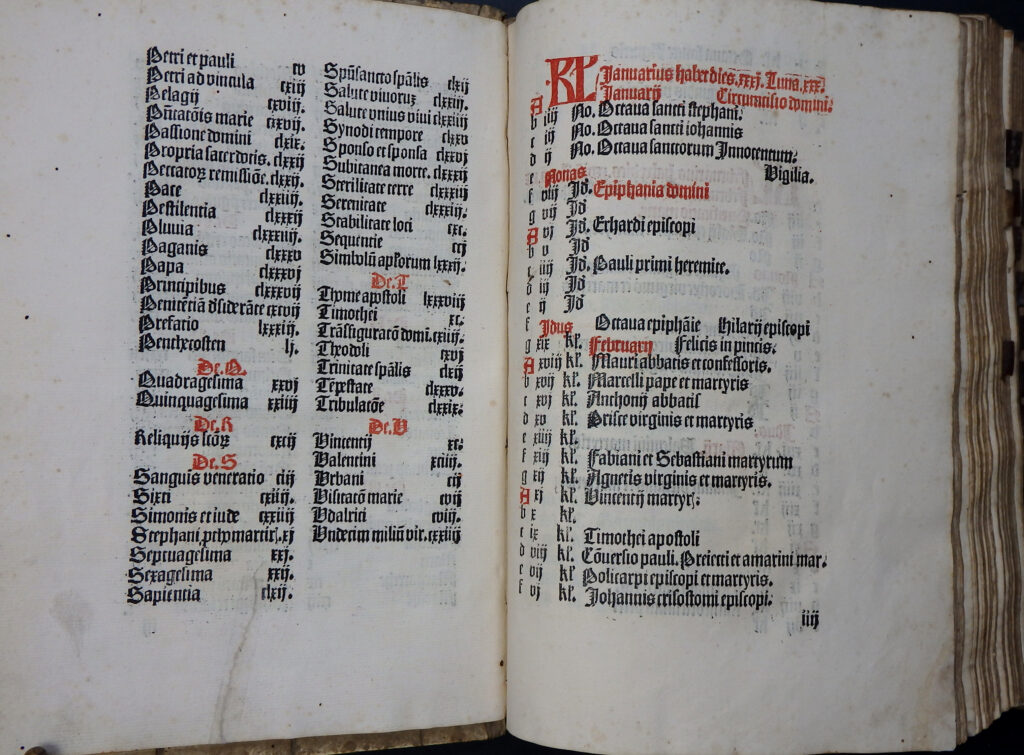 Petri et pauli cv
Petri ad vincula cxiij
Pelagij cxviij.
Pn̄catōis marie cxxvij.
Passione domini clxix.
Propria sacerdotis. clxxij
Peccatorꝝ remissiōe. clxxij.
Pace clxxiiij.
Pestilentia clxxxij
Pluuia clxxxiij.
Paganis clxxxv
Papa clxxxvj
Principibus clxxxvij
Penitēciā dsiderāte cxcvij
Prefatio lxxxiij.
Penthecosten lj.
De. Q.
Quadragesima xxvj
Quinquagesima xxiiij
De. R
Reliquijs scōꝝ cxcij
De. S
Sanguis veneratio ciij
Sixti cxiiij.
Simonis et iude cxxiiij
Stephani ꝓthomartir. xj
Septuagesima xxj.
Sexagesima xxij.
Sapientia clxij.
Spūsancto spālis clxij
Salute viuorum clxxiij.
Salute vnius viui clxxiij
Synodi tempore clxxv
Sponso et sponsa clxxvj
Subitanea morte. clxxxij
Sterilitate terre clxxxiij
Serenitate clxxxiij.
Stabilitate loci cxc.
Sequentie ccj
Simbolū apl'orum lxxxij.
De. T
Thome apostoli lxxxviij
Timothei xc.
Trāsfiguracō domi. cxiiij.
Theodoli cxvj
Trinitate spālis clxij
Tēpestate clxxxv.
Tribulacōe clxxix.
De. V
Vincentij xc.
Valentini xciiij.
Vrbani cij
Visitacō marie cvij
Vdalrici cviij.
Vndecim miliū vir. cxxiij
KL Januarius habet dies. xxxj. Luna. xxx.
A Januarij Circumcisio domini.
b iiij No. Octaua sancti stephani.
c iij No. Octaua sancti iohannis
d ij No. Octaua sanctorum Innocentum.
e Nonas Vigilia.
f viij Jd. Epiphania domini
g vij Jd
A vj Jd. Erhardi episcopi
b v Jd
c iiij Jd. Pauli primi heremite.
d iij Jd
e ij Jd
f Idus Octaua epiphāie Hilarij episcopi
g xix kl. Februarij Felicis in pincis.
A xviij kl. Mauri abbatis et confessoris.
b xvij kl. Marcelli pape et martyris
c xvj kl. Anthonij abbatis
d xv kl. Prisce virginis et martyris
e xiiij kl.
f xiij kl. Fabiani et Sebastiani martyrum
g xij kl. Agnetis virginis et martyris.
A xj kl. Vincentij martyr.
b x kl.
c ix kl. Timothei apostoli
d viij kl. Cōuersio pauli. Preiecti et amarini mar.
e vij kl. Policarpi episcopi et martyris.
f vj kl. Johannis crisostomi episcopi.
iiij